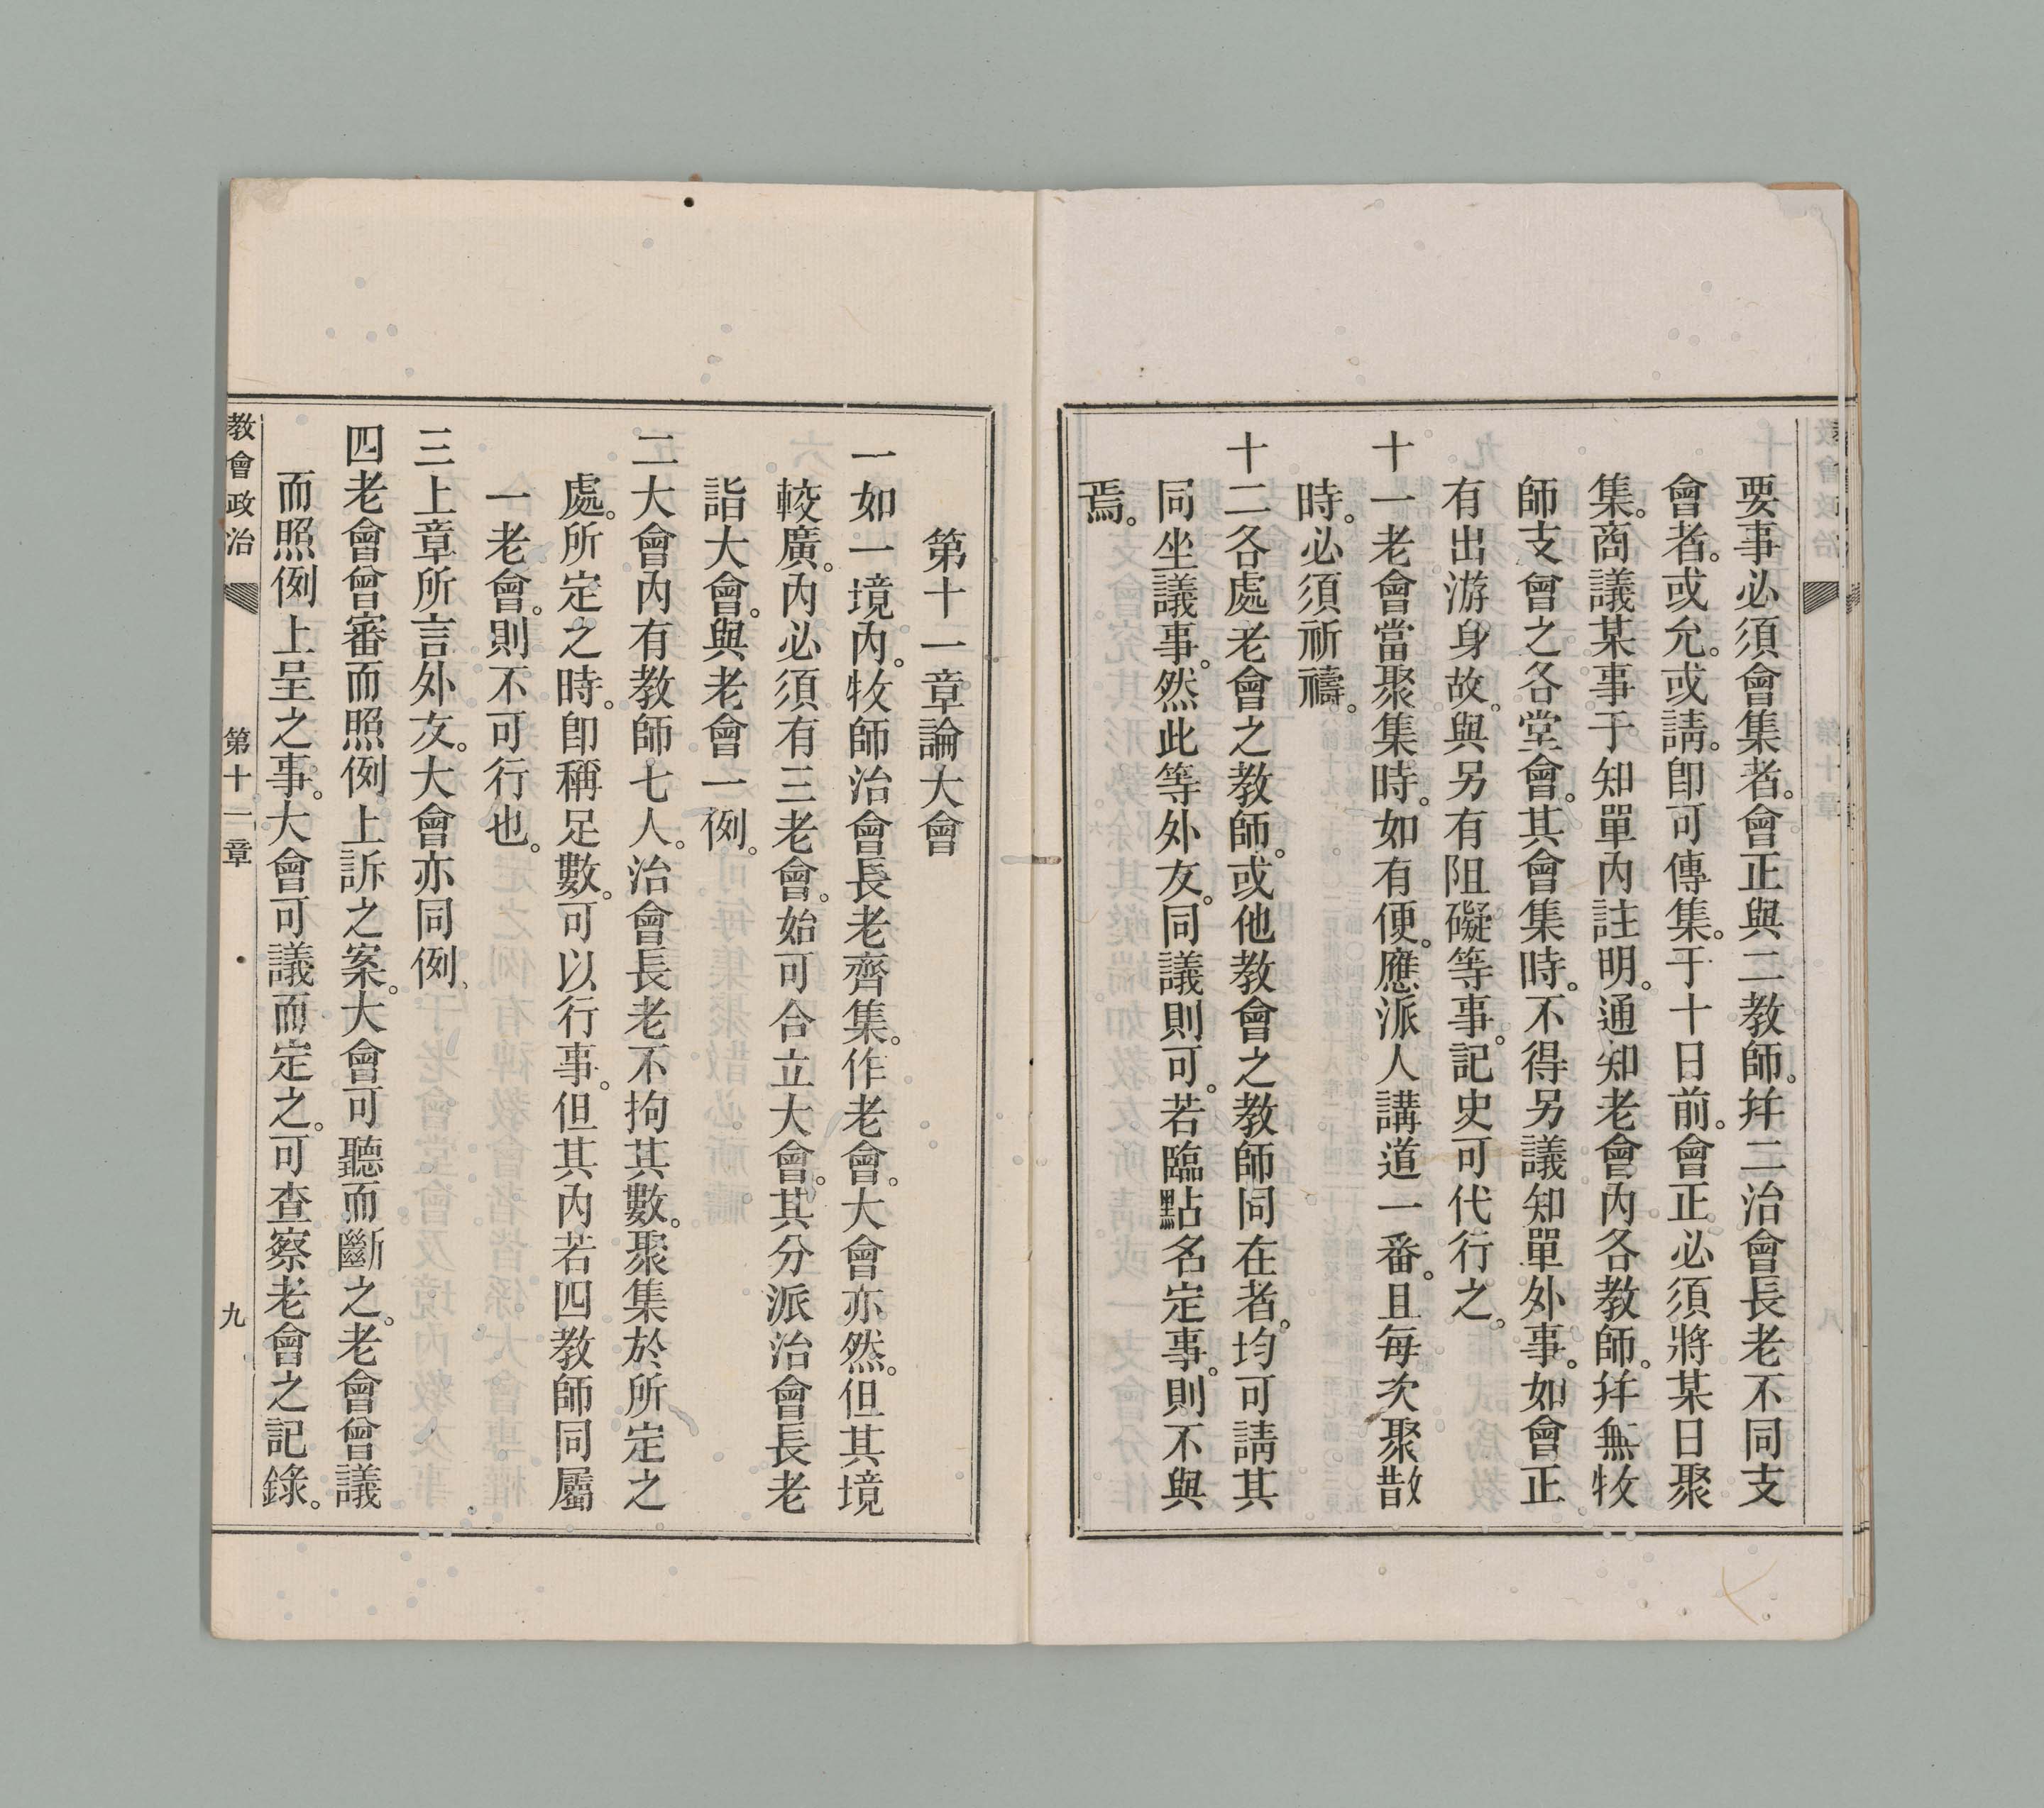 要事必須會集者。會正與二教師。幷二治會長老不同支
會者。或允。或請。卽可傳集。于十日前。會正必須將某日聚
集。商議某事于知單內註明。通知老會內各教師。幷無牧
師支會之各堂會。其會集時。不得另議知單外事。如會正
有出游身故。與另有阻礙等事。記史可代行之。
十一老會當聚集時。如有便。應派人講道一番。且每次聚散
時。必須祈禱。
十二各處老會之教師。或他教會之教師同在者。均可請其
同坐議事。然此等外友。同議則可。若臨點名定事。則不與
焉。
第十一章論大會
一如一境內。牧師治會長老齊集。作老會。大會亦然。但其境
較廣。內必須有三老會。始可合立大會。其分派治會長老
詣大會。與老會一例。
二大會內有教師七人。治會長老不拘其數。聚集於所定之
處。所定之時。卽稱足數。可以行事。但其內若四教師同屬
一老會。則不可行也。
三上章所言外友。大會亦同例。
四老會曾審而照例上訴之案。大會可聽而斷之。老會曾議
而照例上呈之事。大會可議而定之。可查察老會之記錄。
教會政治 第十一章 九